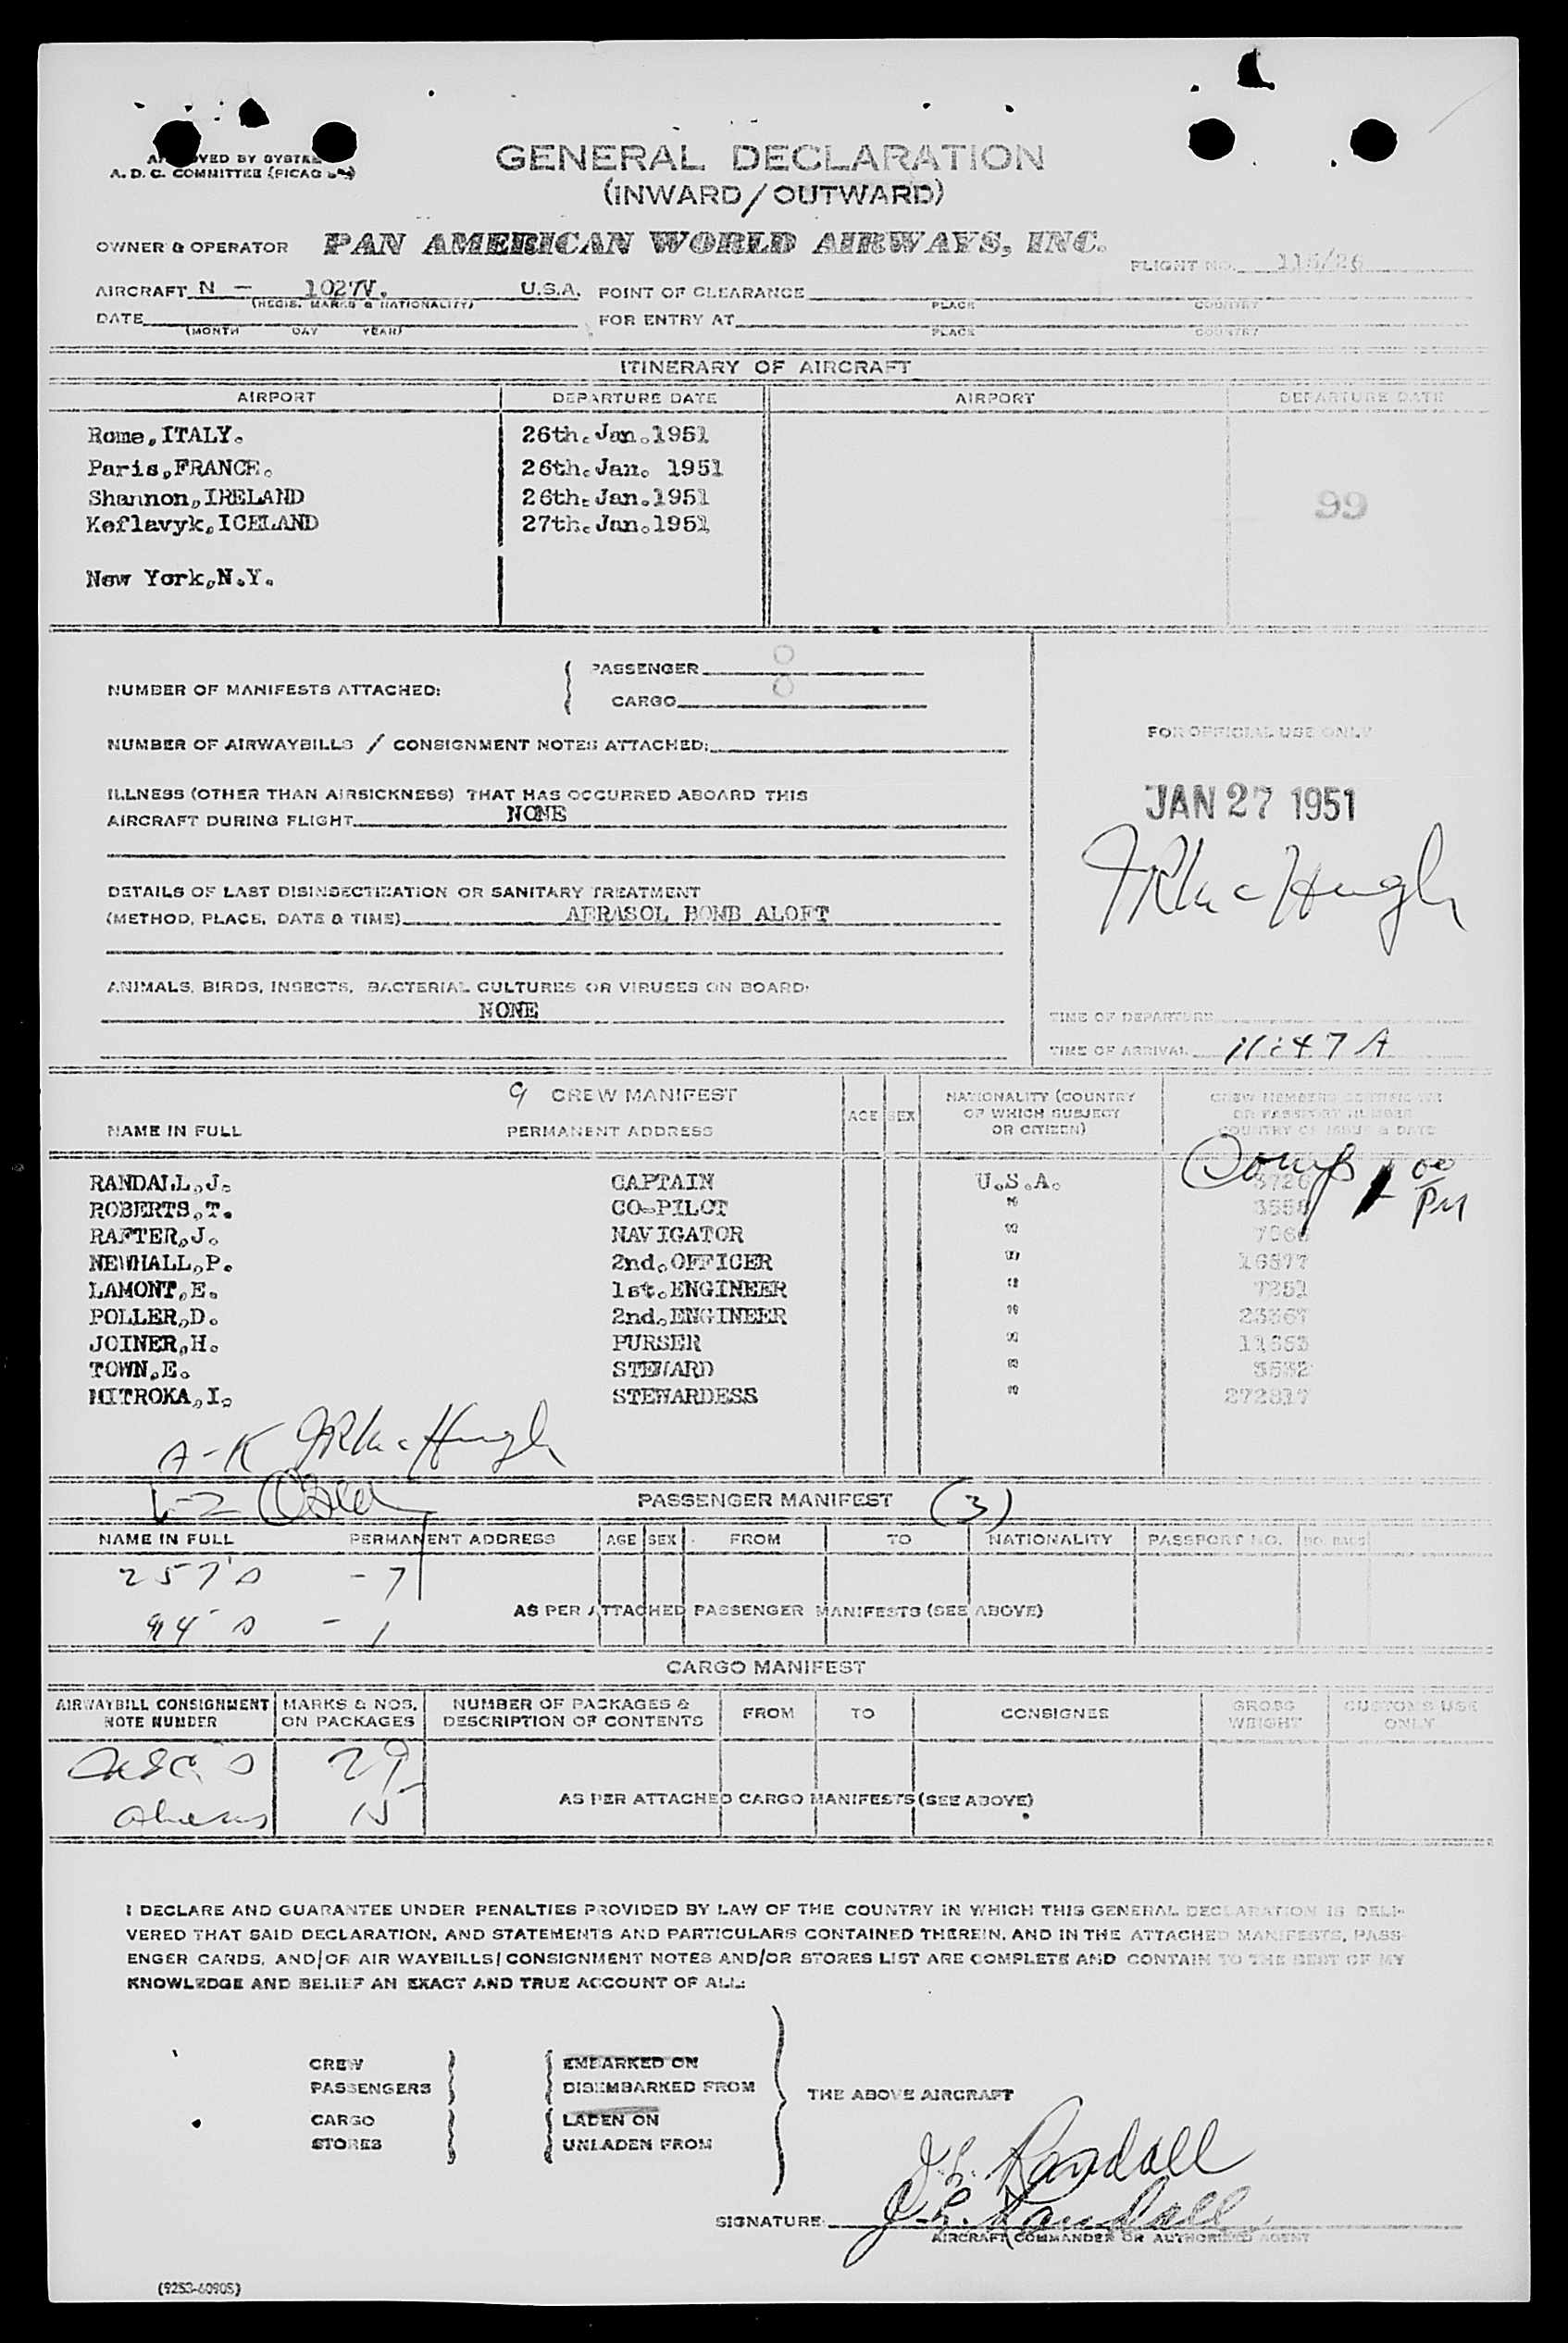 GENERAL DECLARATION
(INWARD/OUTWARD)
A. D. C. COMMITTEE (PICAO
OWNER & OPERATOR PAN AMERICAN WORLD AIRWAYS, INC.
FLIGHT NO. 115/26
AIRCRAFT N - 1027V. U.S.A. POINT OF CLEARANCE
(REGIS. MARKS & NATIONALITY) PLACE COUNTRY
DATE FOR ENTRY AT
(MONTH DAY YEAR) PLACE COUNTRY
ITINERARY OF AIRCRAFT
AIRPORT DEPARTURE DATE AIRPORT DEPARTURE DATE
Rome,ITALY. 26th.Jan.1951
Paris,FRANCE. 26th.Jan. 1951
Shannon,IRELAND 26th.Jan.1951 99
Keflavyk,ICELAND 27th.Jan.1951
New York,N.Y.
PASSENGER 0
NUMBER OF MANIFESTS ATTACHED:
CARGO 0
FOR OFFICIAL USE ONLY
NUMBER OF AIRWAYBILLS / CONSIGNMENT NOTES ATTACHED:
ILLNESS (OTHER THAN AIRSICKNESS) THAT HAS OCCURRED ABOARD THIS
AIRCRAFT DURING FLIGHT NONE
JAN 27 1951
JR MacHugh
DETAILS OF LAST DISINSECTIZATION OR SANITARY TREATMENT
(METHOD, PLACE, DATE & TIME) AERASOL BOMB ALOFT
ANIMALS, BIRDS, INSECTS, BACTERIAL CULTURES OR VIRUSES ON BOARD:
NONE
TIME OF DEPARTURE
TIME OF ARRIVAL 11:47 A
9 CREW MANIFEST
NAME IN FULL PERMANENT ADDRESS AGE SEX NATIONALITY (COUNTRY OF WHICH SUBJECT OR CITIZEN) CREW MEMBERS CERTIFICATE OR PASSPORT NUMBER COUNTRY OF ISSUE & DATE
Comp 1 00 PM
RANDALL,J. CAPTAIN U.S.A. 3726
ROBERTS,T. CO-PILOT "
RAFTER,J. NAVIGATOR "
NEWHALL,P. 2nd.OFFICER " 16577
LAMONT,E. 1st.ENGINEER " 7251
POLLER,D. 2nd.ENGINEER " 23367
JOINER,H. PURSER "
TOWN,E. STEWARD " 3632
MITROKA,I. STEWARDESS " 272817
A-K JR MacHugh
L-Z
PASSENGER MANIFEST (3)
NAME IN FULL PERMANENT ADDRESS AGE SEX FROM TO NATIONALITY PASSPORT NO. NO. BAGS
257's - 7
94's - 1
AS PER ATTACHED PASSENGER MANIFESTS (SEE ABOVE)
CARGO MANIFEST
AIRWAYBILL CONSIGNMENT NOTE NUMBER MARKS & NOS. ON PACKAGES NUMBER OF PACKAGES & DESCRIPTION OF CONTENTS FROM TO CONSIGNEE GROSS WEIGHT CUSTOMS USE ONLY
29
Aliens 15
AS PER ATTACHED CARGO MANIFESTS (SEE ABOVE)
I DECLARE AND GUARANTEE UNDER PENALTIES PROVIDED BY LAW OF THE COUNTRY IN WHICH THIS GENERAL DECLARATION IS DELI-
VERED THAT SAID DECLARATION, AND STATEMENTS AND PARTICULARS CONTAINED THEREIN, AND IN THE ATTACHED MANIFESTS, PASS-
ENGER CARDS, AND/OR AIR WAYBILLS/CONSIGNMENT NOTES AND/OR STORES LIST ARE COMPLETE AND CONTAIN TO THE BEST OF MY
KNOWLEDGE AND BELIEF AN EXACT AND TRUE ACCOUNT OF ALL:
CREW EMBARKED ON
PASSENGERS DISEMBARKED FROM
THE ABOVE AIRCRAFT
CARGO LADEN ON
STORES UNLADEN FROM
J.L. Randall
SIGNATURE: J.L. Randall
AIRCRAFT COMMANDER OR AUTHORIZED AGENT
(9253-6090S)